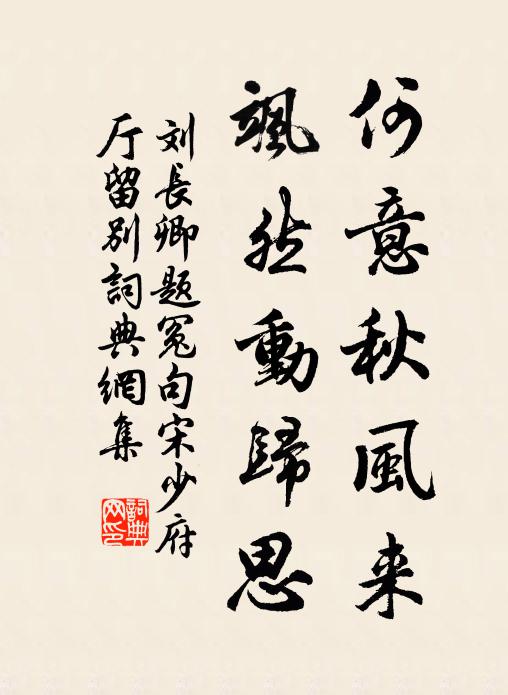 何意秋风来
飒然動歸思
刘長卿题冤句宋少府
厅留别詞典網集
詞典
网印